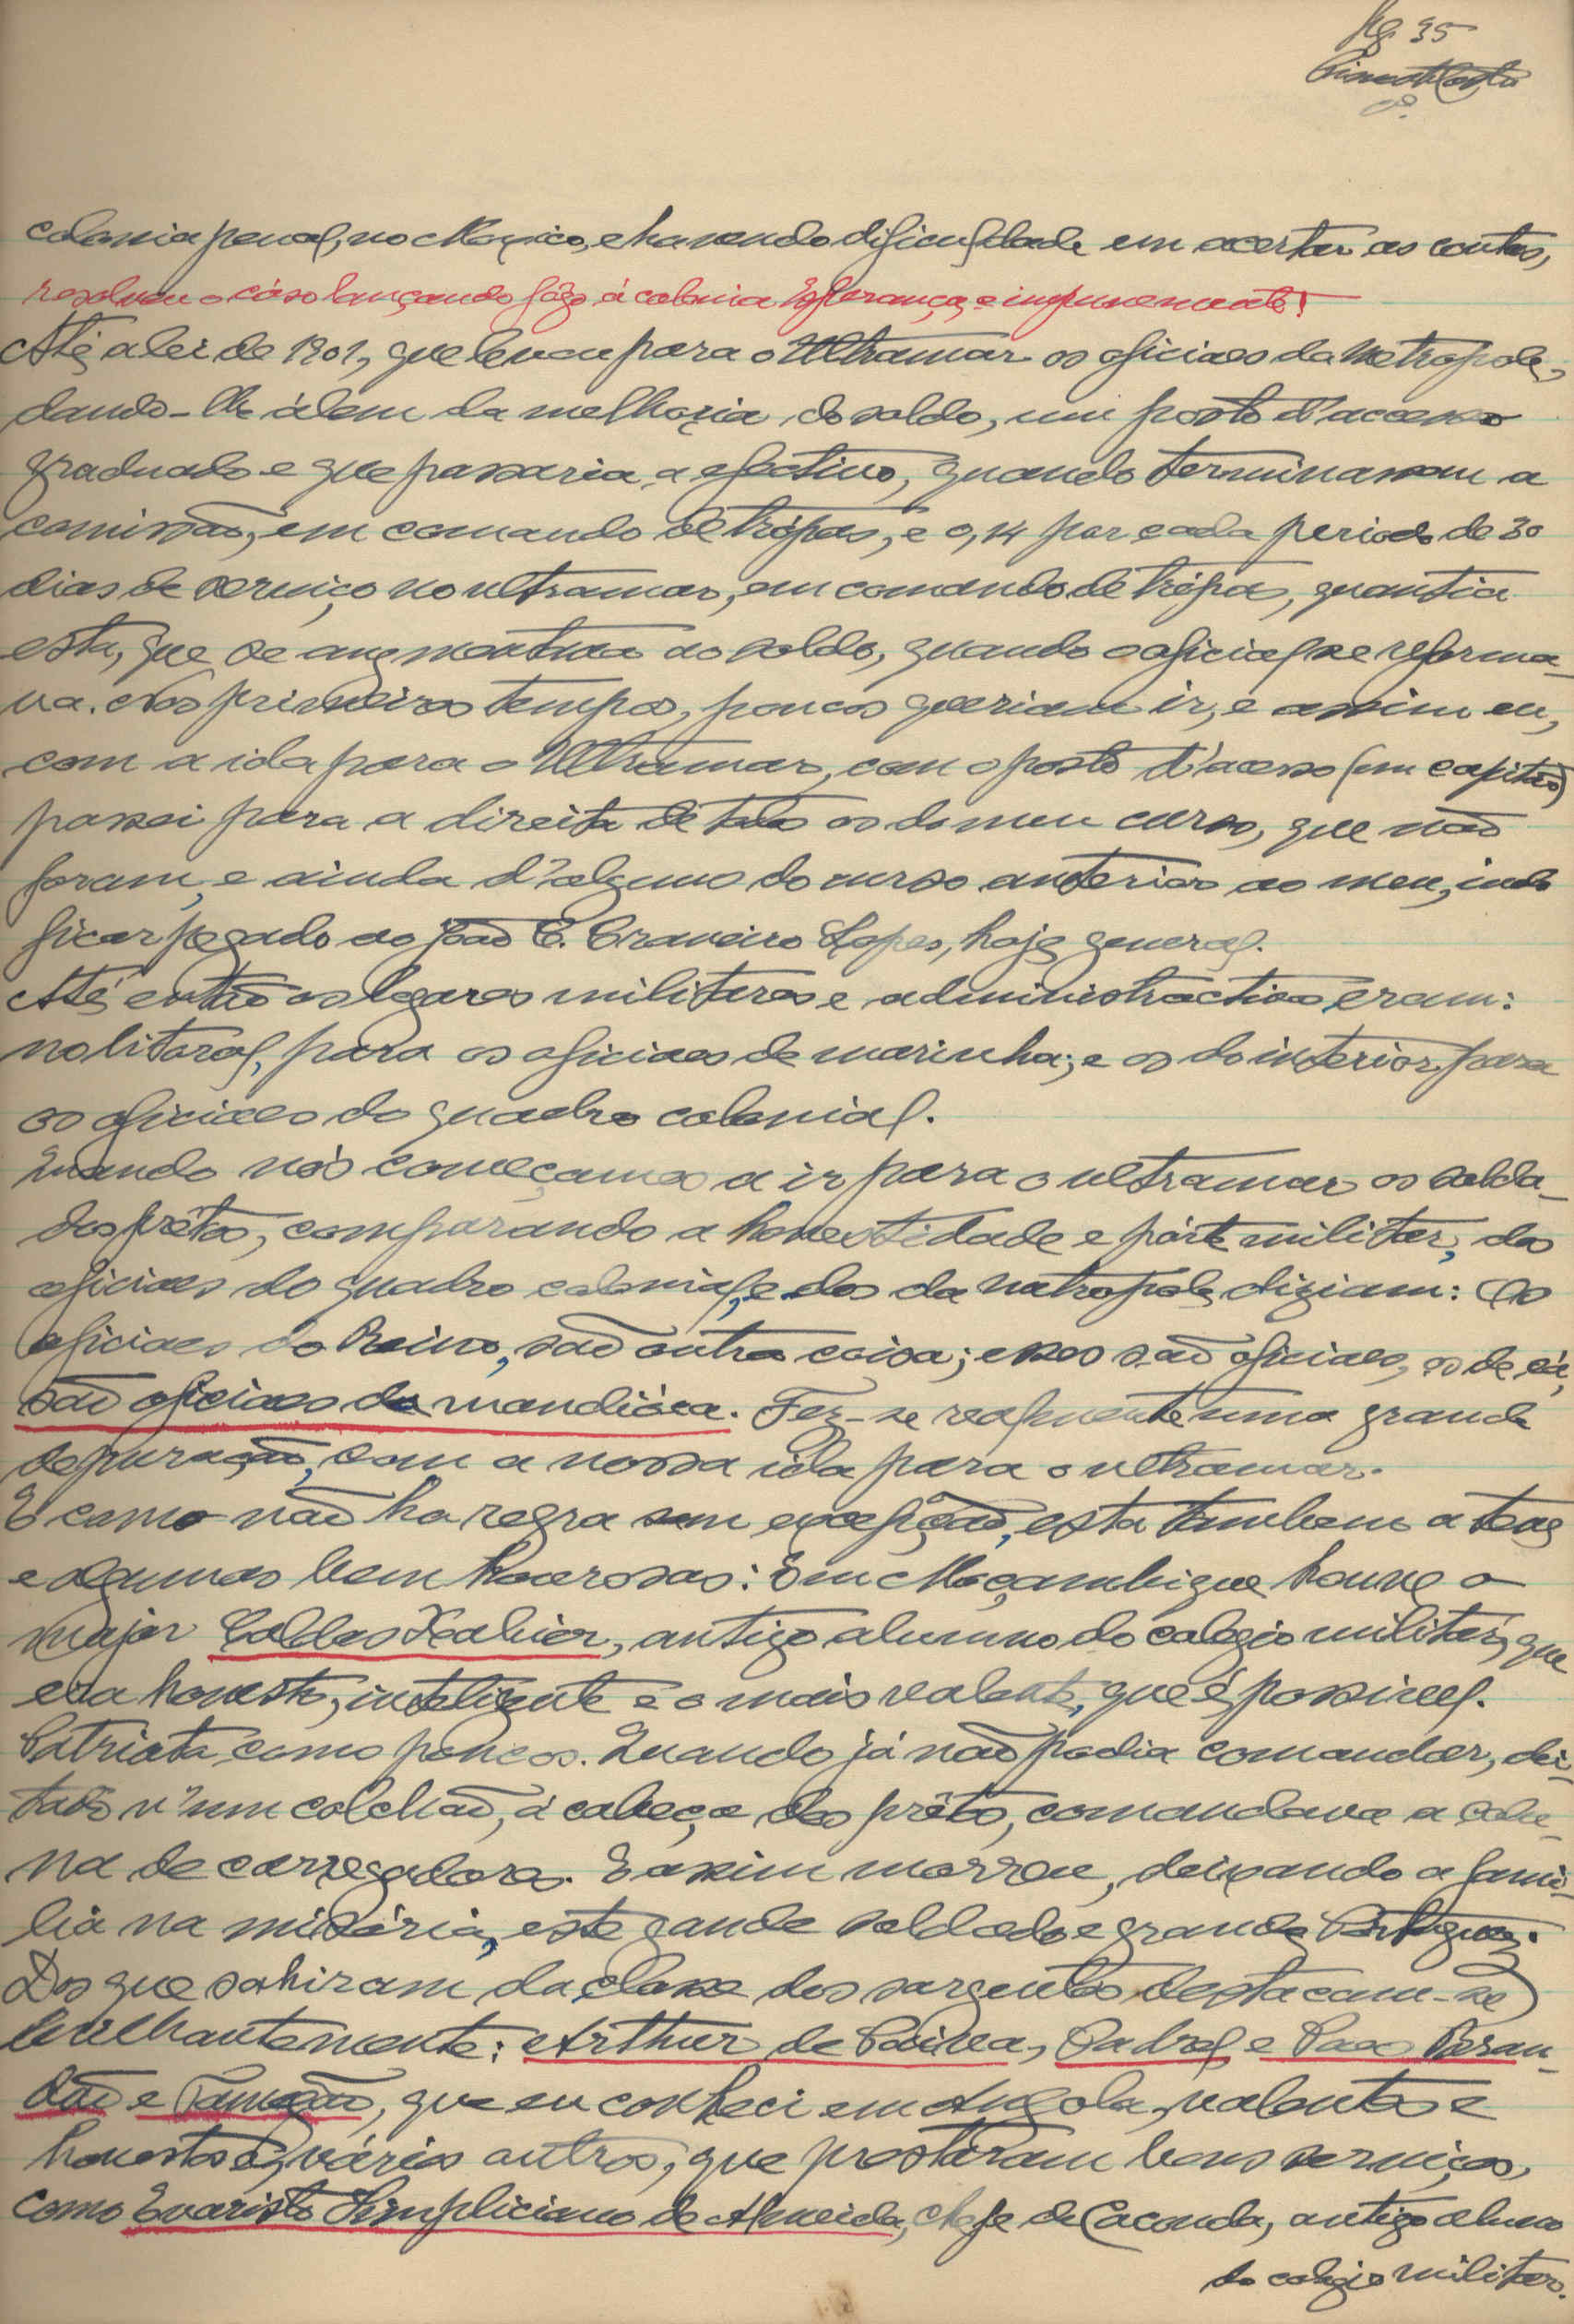 Pg. 35
Pimenta Costa
colonia penal, no Moxico, e havendo dificuldade em acertar as contas,
resolveu o cáso lançando fôgo á colonia Esperança, e impunemente!
Até a lei de 1901, que levou para o Ultramar os oficiaes da Metropole,
dando-lhe álem da melhoria do soldo, um posto d'accesso
graduado e que passaria a efectivo, quando terminassem a
comissão, em comando de trópas, e 0,14 por cada periodo de 30
dias de serviço no ultramar, em comando de trópas, quantia
esta, que se augmentava ao soldo, quando o oficial se reforma-
va. Nos primeiros tempos, poucos queriam ir, e assim eu,
com a ida para o Ultramar, com o posto d'acesso (em capitão)
passei para a direita de todos os do meu curso, que não
foram, e ainda d'alguns do curso anterior ao meu, indo
ficar pegado ao João C. Craveiro Lopes, hoje general.
Até então os logares militares e administractivos eram:
no litoral, para os oficiaes de marinha; e os do interior para
os oficiaes do quadro colonial.
Quando nós começamos a ir para o ultramar os solda-
dos prêtos, comparando a honestidade e párte militar, dos
oficiaes do quadro colonial, e dos da metropole, diziam: Os
oficiaes do Reino, são outra coisa; esses são oficiaes, os de cá,
são oficiaes de mandióca. Fez-se realmente uma grande
depuração, com a nossa ida para o ultramar.
E como não ha regra sem excepção, esta tambem a teve
e algumas bem honrosas: Em Moçambique houve o
major Caldas Xavier, antigo alumno do colegio militar, que
era honesto, inteligente e o mais valente, que é possivel.
Patriota como poucos. Quando já não podia comandar, dei-
tado n'um colchão, á cabeça dos prêtos, comandava a colu-
na de carregadores. E assim morreu, deixando a fami-
lia na miséria, este gande soldado e grande Portuguez.
Dos que sahiram da classe dos sargentos destacam-se
brilhantemente: Arthur de Paiva, Padrel e Paes Bran-
dão e Tamegão, que eu conheci em Angola, valentes e
honestos e, vários outros, que prestaram bons serviços,
como Evaristo Simpliciano de Almeida, chefe de Caconda, antigo aluno
do colegio militar.